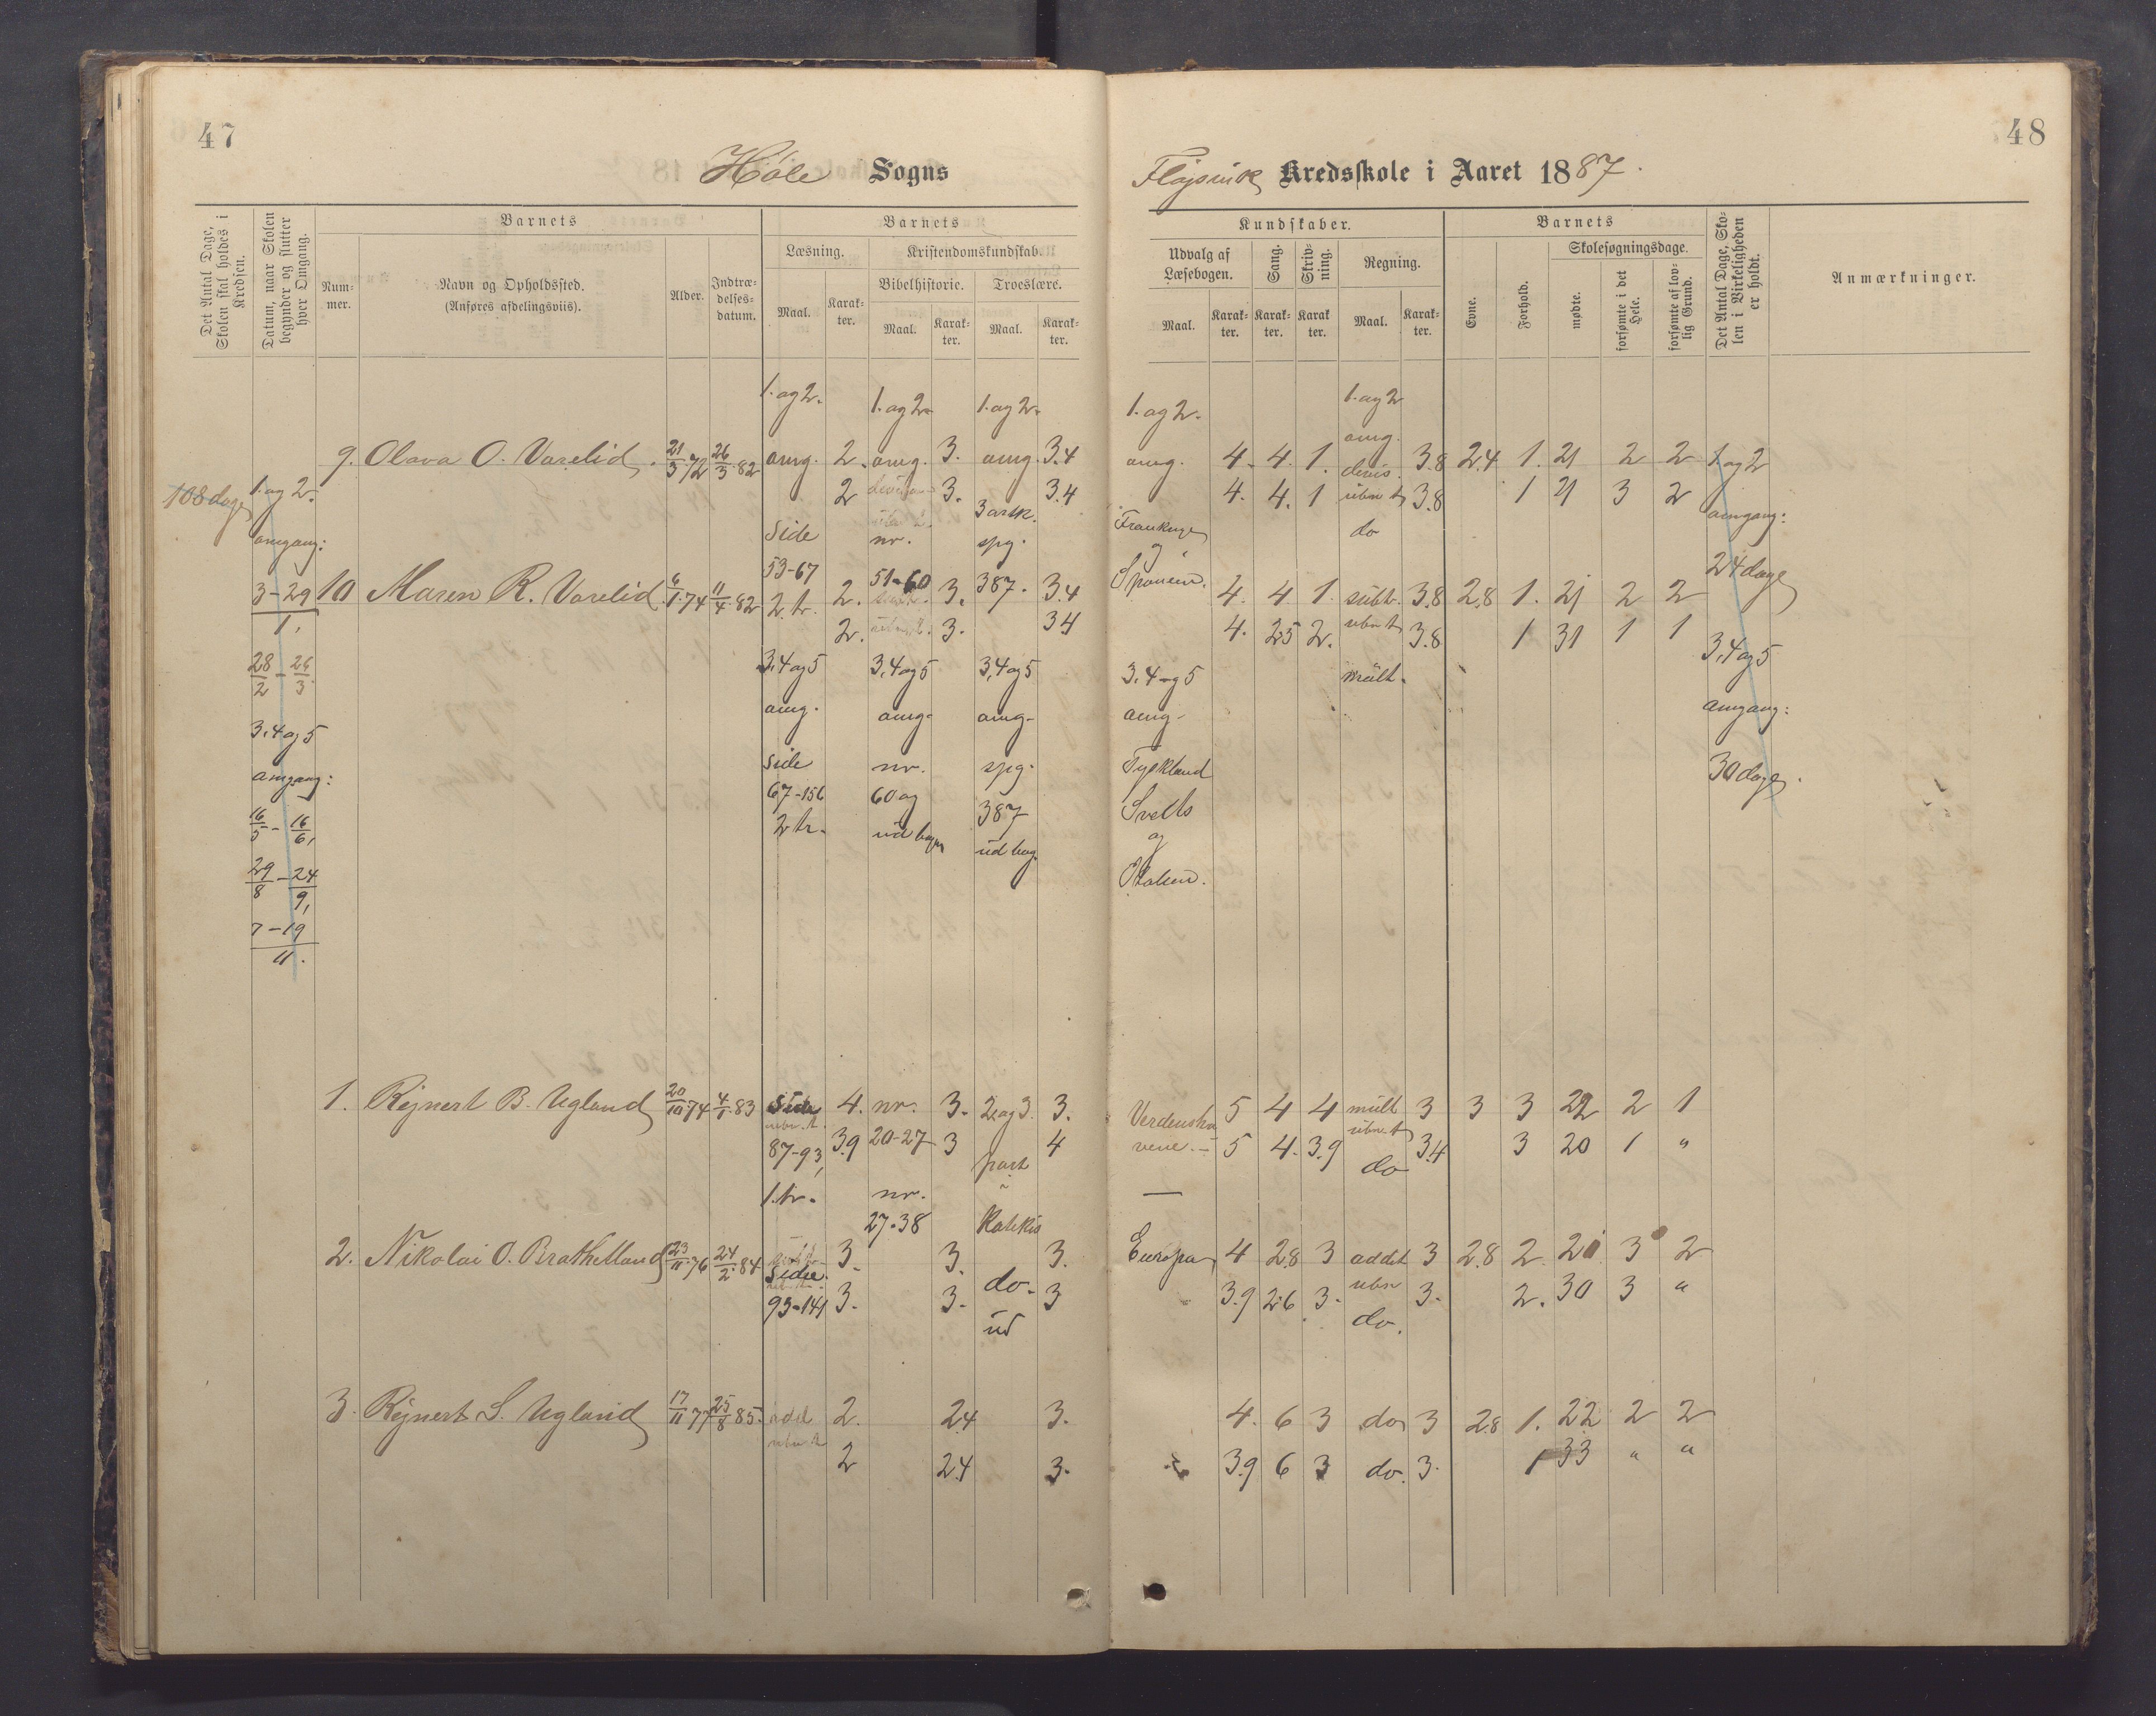 47
48
Høle Sogns
Kredsskole i Aaret 1887.
Det Antal Dage, Skolen skal holdes i Kredsen.
Datum, naar Skolen begynder og slutter hver Omgang.
Barnets
Num-
mer.
Navn og Opholdssted.
(Anføres afdelingsviis).
Alder.
Indtræ-
delses-
datum.
Barnets
Læsning.
Kristendomskundskab.
Bibelhistorie. Troeslære.
Maal. Karak-
ter.
Maal. Karak-
ter.
Maal. Karak-
ter.
Kundskaber.
Udvalg af
Læsebogen.
Sang.
Skriv-
ning.
Regning.
Maal. Karak-
ter.
Karak-
ter.
Karak
ter.
Maal. Karak-
ter.
Barnets
Evne.
Forhold.
Skolesøgningsdage.
mødte.
forsømte i det
Hele.
forsømte af lov-
lig Grund.
Det Antal Dage, Sko-
len i Virkeligheden
er holdt.
Anmærkninger.
1. og 2. 1. og 2. 1. og 2. 1. og 2. 1. og 2
9. Olava O. Varelid. 21/3 72 26/3 82 omg. 2. omg. 3. omg. 3.4 omg. 4. 4. 1. 3.8 2.4 1. 21 2 2 1 og 2
108 dage 1. og 2. 2 3. 3.4 4. 4. 1 3.8 1 21 3 2
omgang: side nr. spg. do omgang:
53-67 51-60 og 24 dage
3-29/1, 10 Maren R. Varelid. 6/1 74 11/4 82 2 tr. 2. 3. 387. 3.4 4. 4. 1. subtr. 3.8 2.8 1. 21 2 2
2. 3. 34 4. 25 2. 3.8 1 31 1 1
28/2 - 26/3 3,4 og 5 3,4 og 5 3,4 og 5 3. 4 og 5 mült. 3,4 og 5
3.4 og 5 omg. omg. omg. omg. omgang:
omgang: side nr. spg. Tyskland 30 dage.
16/5 - 16/6, 67-156 60 og 387
2 tr. ud bog. og
29/8 - 24/9,
7-19/11.
1. Rejnert B. Ugland 20/10 74 4/1 83 side 4. nr. 3. 2 og 3. 3. 5 4 4 mült 3 3 3 22 2 1
87-93, 3.9 20-27 3 part 4 5 4. 3.9 do 3.4 3 20 1 "
1. tr. nr.
27-38 Katekis
2. Nikolai O. Brathetland 23/11 76 24/2 84 side 3. 3. 3. Europa 4 2.8 3 addit 3 2.8 2. 21 3 2
93-141 3. 3. do. 3 " 3.9 2.6 3. do. 3. 2. 30 3 "
ud
3. Rejnert S. Ugland 17/11 77 25/8 85. 2. 2.4 3. 4. 6 3 do 3 2.8 1. 22 2 2
2 2.4 3. 3.9 6 3 do. 3. 1 33 " "